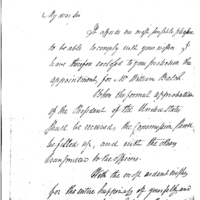 My dear Sir
It affords me most sensible pleasure
to be able to comply with your wishes. I
have
appointment, for Mr William Balch.
When the formal approbation
of the President of the United States
shall be received, the Commission shall
be filled up, and with the others
transmitted to the officers.
With the most ardent wishes
for the entire happiness of yourself, and